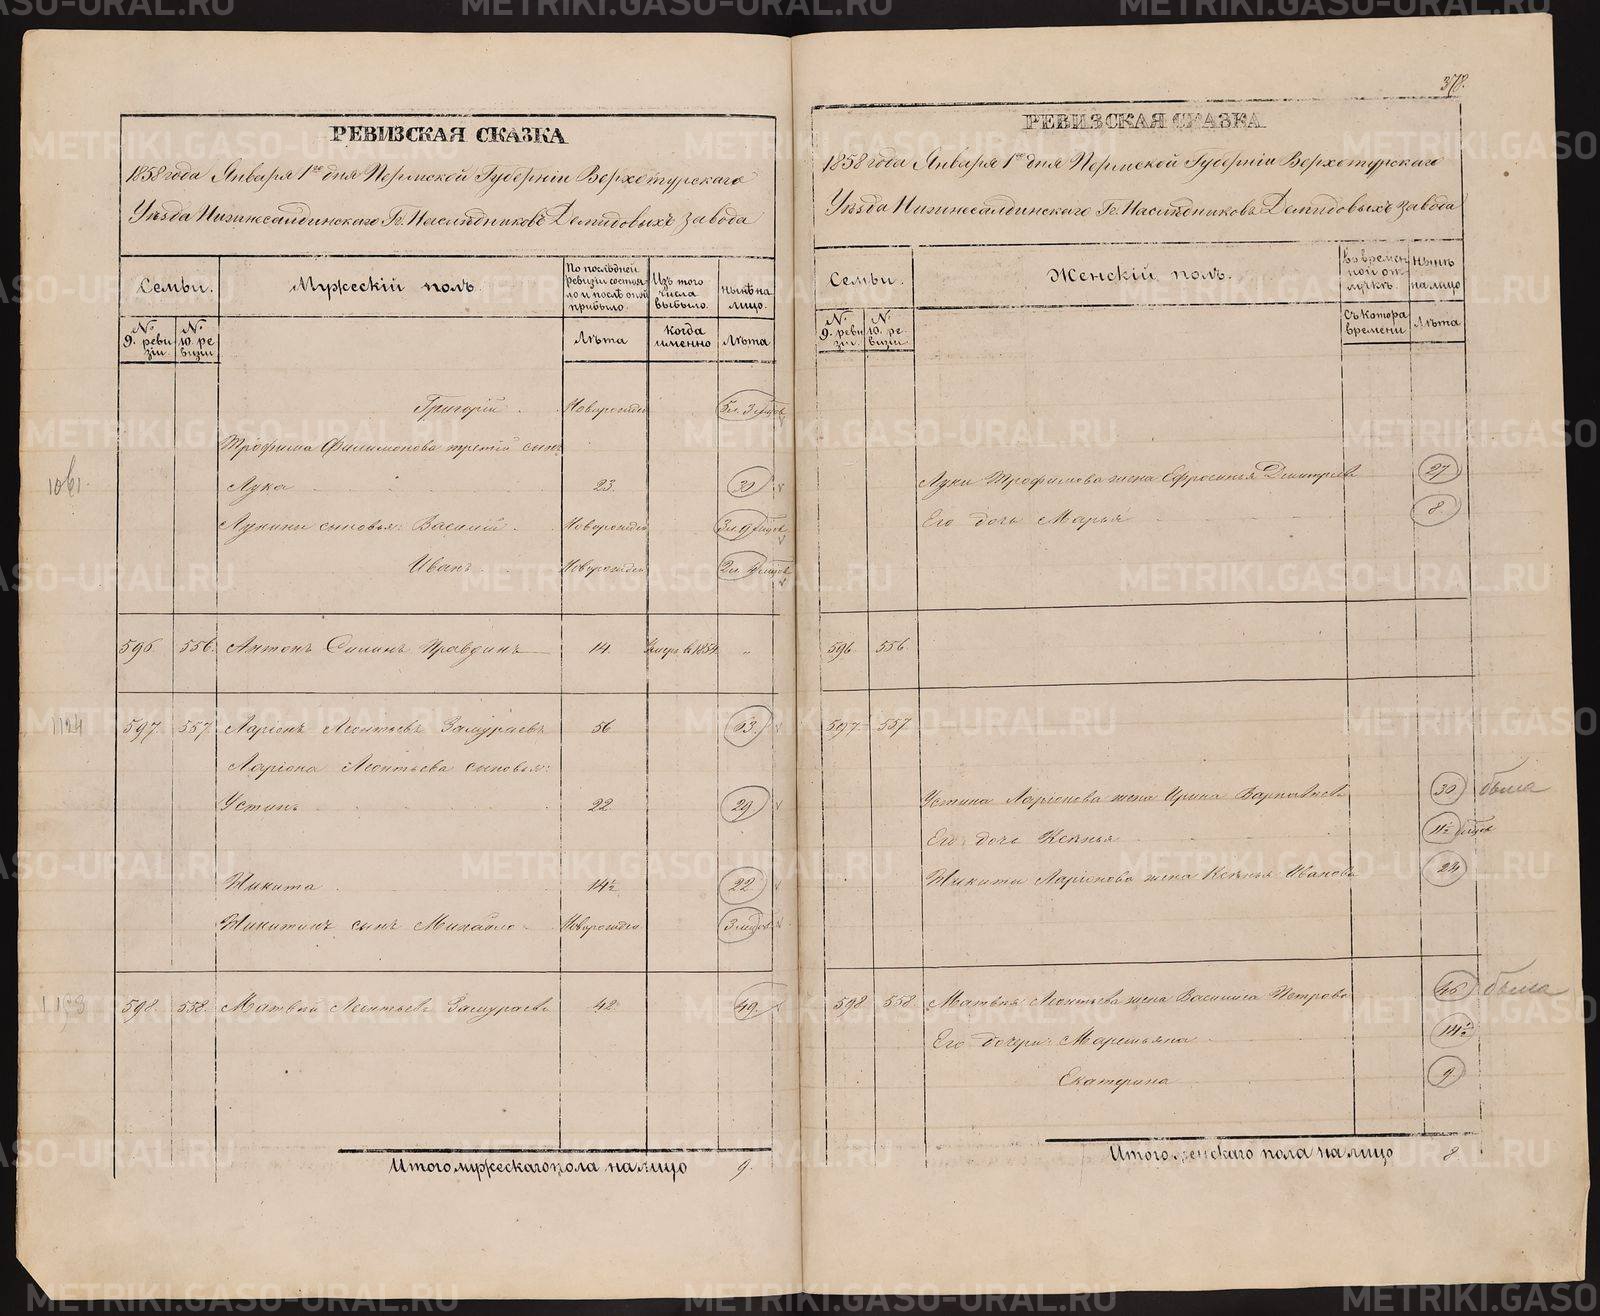 РЕВИЗСКАЯ СКАЗКА
1858 года Января 1го дня Пермской Губерніи Верхотурскаго
Уѣзда Нижнесалдинскаго Гг. Наслѣдниковъ Демидовыхъ завода
Семьи.
Мужескій полъ.
По послѣдней ревизіи состояло и послѣ оной прибыло.
Изъ того числа выбыло.
Нынѣ на лицо.
№ 9. ревизіи.
№ 10. ревизіи
Лѣта
когда именно
Лѣта
Григорій. Новорожден 5л. 3 мѣсяц
Трофима Филимонова третій сынъ
1061.
Лука 23. 30
Лукини сыновья: Василій. Новорожден 3л 9 мѣсяц
Иванъ Новорожден 2л
596 556. Антонъ Силинъ Правдинъ 14 Умеръ в 1854 „
1124 597. 557 Ларіонъ Леонтьевъ Замураевъ 56 63.
Ларіона Леонтьева сыновья:
Устинъ 22 29
Никита 14½ 22
Никитинъ сынъ Михайло Новорожден 3 мѣсяц
598. 558. Матвей Леонтьевъ Замураевъ 42 49.
Итого мужескаго пола на лицо 9.
378.
РЕВИЗСКАЯ СКАЗКА
1858 года Января 1го дня Пермской Губерніи Верхотурскаго
Уѣзда Нижнесалдинскаго Гг. Наслѣдниковъ Демидовыхъ завода
Семьи.
Женскій полъ.
Во временной отлучкѣ.
Нынѣ на лицо
№ 9. ревизіи.
№ 10. ревизіи
Съ котора времени
Лѣта
Луки Трофимова жена Ефросинья Дмитріев 27
Его дочь Марья 8
596 556.
597. 557
Устина Ларіонова жена Ирина 30 была
Его дочь Ксѣнья 11½
Никиты Ларіонова жена Ксѣнья Иванова 24
598 558. Матвѣя Леонтьева жена Василиса Петрова 46 была
Его дочери: Маремьяна 14½
Екатерина 9.
Итого женскаго пола на лицо 8
METRIKI.GASO-URAL.RU